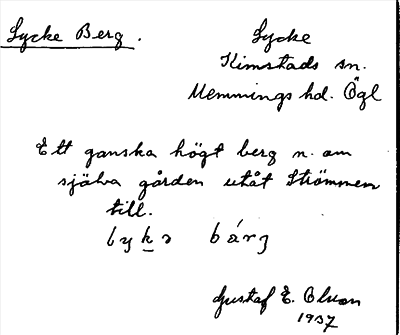 Lycke Berg.
Lycke
Kimstads sn.
Memmings hd. Ögl
Ett ganska högt berg n. om
själva gården utåt Strömmen
till.
Gustaf E. Olson
1937